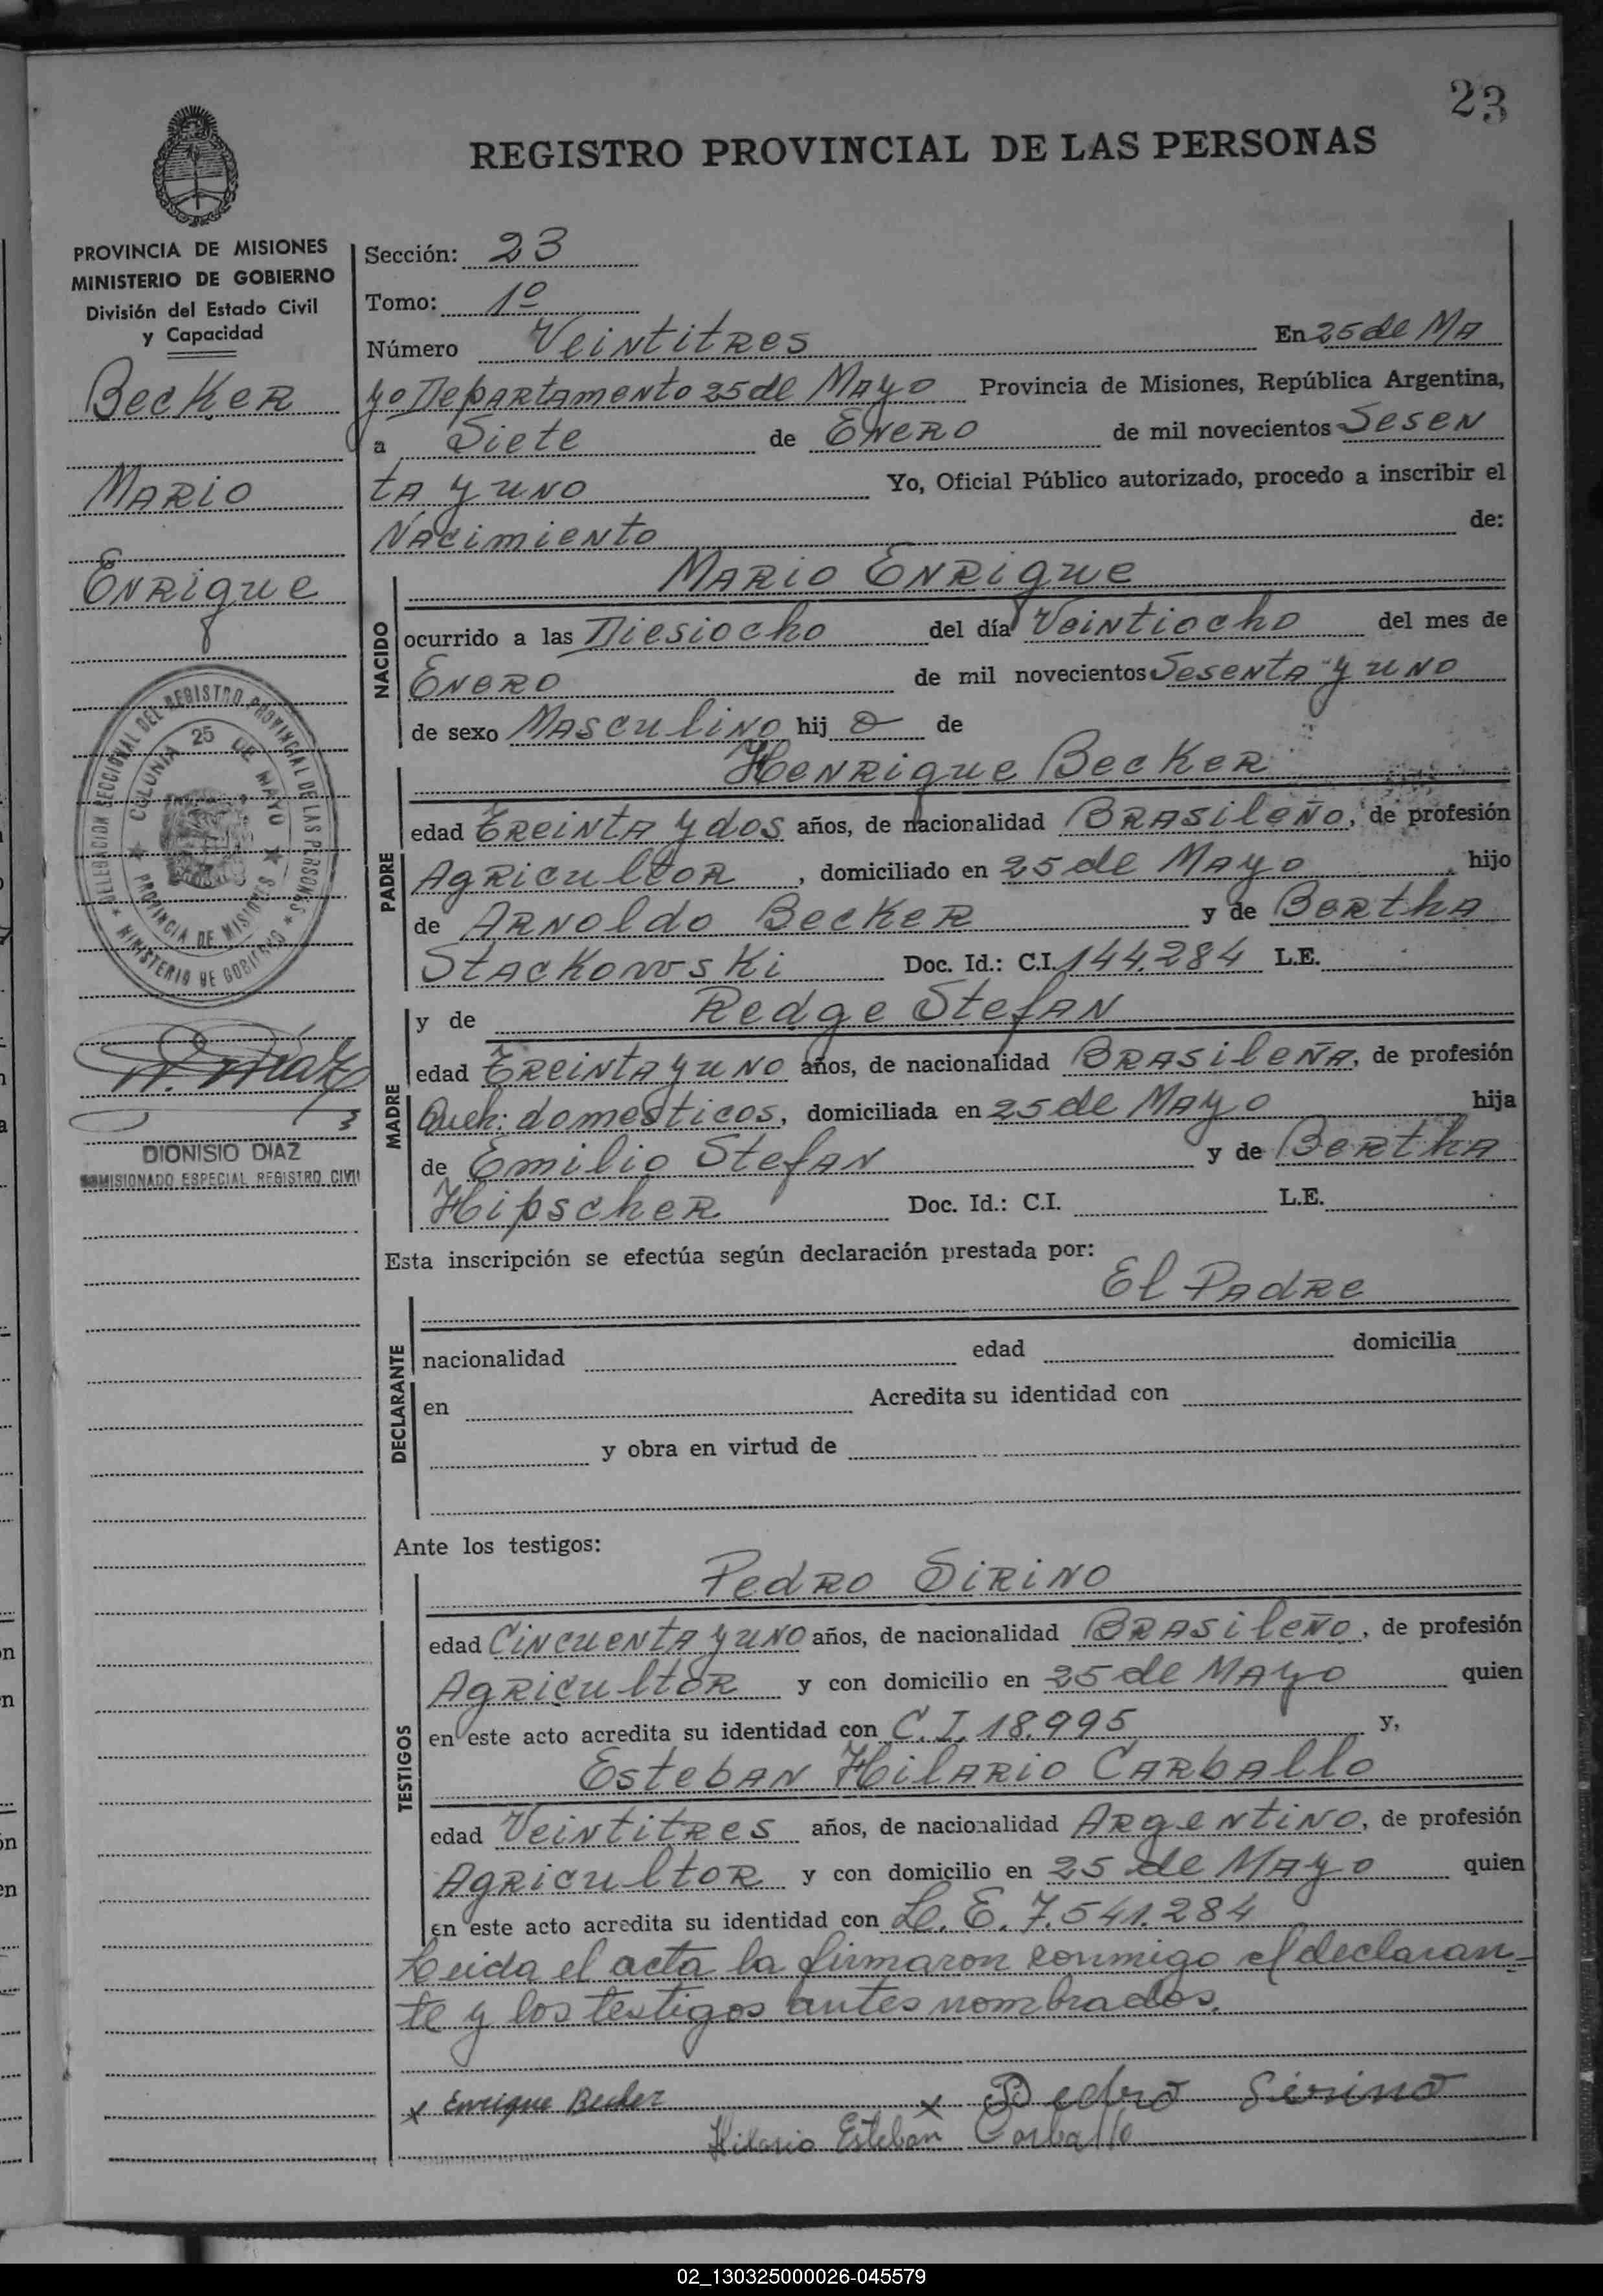 23
REGISTRO PROVINCIAL DE LAS PERSONAS
PROVINCIA DE MISIONES
MINISTERIO DE GOBIERNO
División del Estado Civil
y Capacidad
Becker
Mario
Enrique
DELEGACION SECCIONAL DEL REGISTRO PROVINCIAL DE LAS PERSONAS
★ MINISTERIO DE GOBIERNO ★
COLONIA 25 DE MAYO
★ PROVINCIA DE MISIONES ★
D. Diaz
DIONISIO DIAZ
COMISIONADO ESPECIAL REGISTRO CIVIL
Sección: 23
Tomo: 1º
Número Veintitres En 25 de Ma
yo Departamento 25 de Mayo Provincia de Misiones, República Argentina,
a Siete de Enero de mil novecientos Sesen
ta y uno Yo, Oficial Público autorizado, procedo a inscribir el
Nacimiento de:
NACIDO
Mario Enrique
ocurrido a las Diesiocho del día Veintiocho del mes de
Enero de mil novecientos Sesenta y uno
de sexo Masculino hij o de
PADRE
Henrique Becker
edad Treinta y dos años, de nacionalidad Brasileño, de profesión
Agricultor, domiciliado en 25 de Mayo, hijo
de Arnoldo Becker y de Bertha
Stackowski Doc. Id.: C.I. 144.284 L.E.
MADRE
y de Redge Stefan
edad Treinta y uno años, de nacionalidad Brasileña, de profesión
Queh: domesticos, domiciliada en 25 de Mayo hija
de Emilio Stefan y de Bertha
Hipscher Doc. Id.: C.I. L.E.
Esta inscripción se efectúa según declaración prestada por:
DECLARANTE
El Padre
nacionalidad edad domicilia
en Acredita su identidad con
y obra en virtud de
Ante los testigos:
TESTIGOS
Pedro Sirino
edad Cincuenta y uno años, de nacionalidad Brasileño, de profesión
Agricultor y con domicilio en 25 de Mayo quien
en este acto acredita su identidad con C.I. 18.995 y,
Esteban Hilario Carballo
edad Veintitres años, de nacionalidad Argentino, de profesión
Agricultor y con domicilio en 25 de Mayo quien
en este acto acredita su identidad con L.E. 7.541.284
Leida el acta la firmaron conmigo el declaran-
te y los testigos antes nombrados.
x Enrique Becker x Pedro Sirino
Hilario Esteban Carballo
02_130325000026-045579